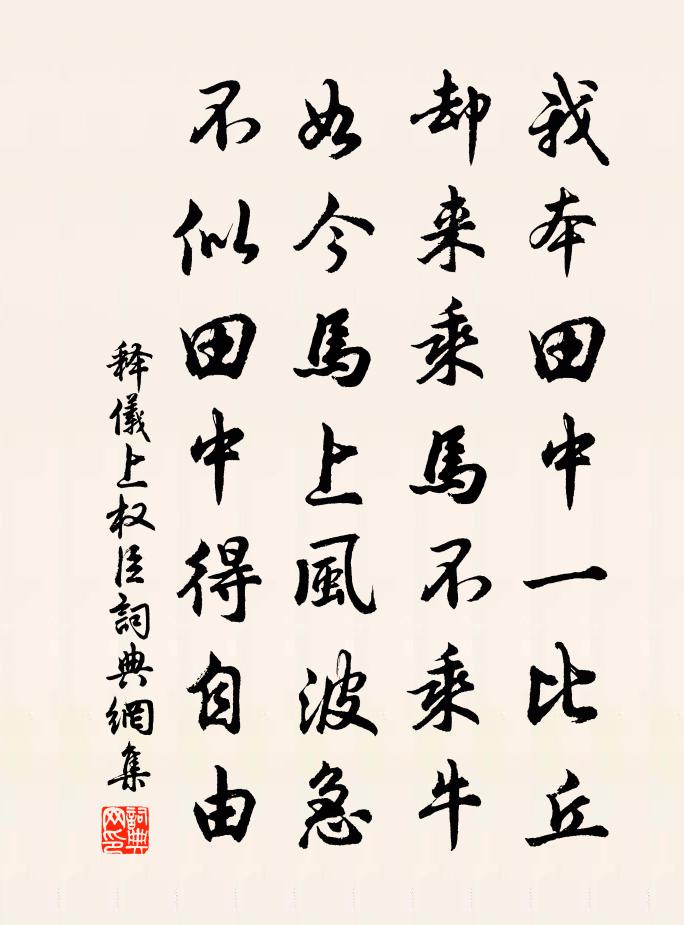 我本田中一比丘
却来乘馬不乘牛
如今馬上風波急
不似田中得自由
释儀上权臣詞典網集
詞典網印